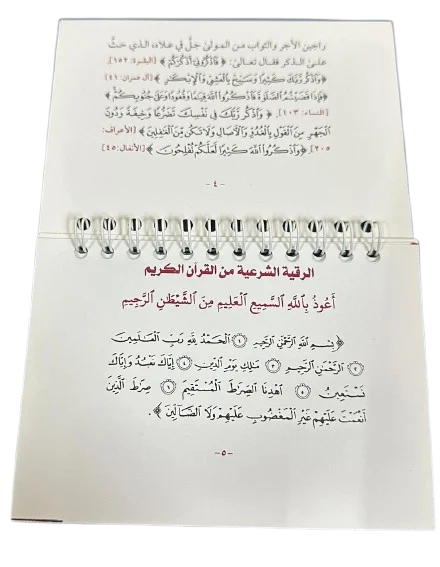 راجين الأجر والثواب من المولىٰ جلَّ في علاه، الذي حثَّ
علىٰ الذكر فقال تعالىٰ: ﴿فَاذْكُرُونِي أَذْكُرْكُمْ﴾ [البقرة: ١٥٢].
﴿وَاذْكُر رَّبَّكَ كَثِيرًا وَسَبِّحْ بِالْعَشِيِّ وَالْإِبْكَٰرِ﴾ [آل عمران: ٤١]
﴿فَإِذَا قَضَيْتُمُ الصَّلَوٰةَ فَاذْكُرُوا اللَّهَ قِيَٰمًا وَقُعُودًا وَعَلَىٰ جُنُوبِكُمْ﴾
[النساء: ١٠٣]. ﴿وَاذْكُر رَّبَّكَ فِي نَفْسِكَ تَضَرُّعًا وَخِيفَةً وَدُونَ
الْجَهْرِ مِنَ الْقَوْلِ بِالْغُدُوِّ وَالْآصَالِ وَلَا تَكُن مِّنَ الْغَٰفِلِينَ﴾ [الأعراف:
٢٠٥]. ﴿وَاذْكُرُوا اللَّهَ كَثِيرًا لَّعَلَّكُمْ تُفْلِحُونَ﴾ [الأنفال: ٤٥]
-٤-
الرقية الشرعية من القرآن الكريم
أَعُوذُ بِاللَّهِ السَّمِيعِ الْعَلِيمِ مِنَ الشَّيْطَٰنِ الرَّجِيمِ
﴿بِسْمِ اللَّهِ الرَّحْمَٰنِ الرَّحِيمِ ١ الْحَمْدُ لِلَّهِ رَبِّ الْعَٰلَمِينَ
٢ الرَّحْمَٰنِ الرَّحِيمِ ٣ مَٰلِكِ يَوْمِ الدِّينِ ٤ إِيَّاكَ نَعْبُدُ وَإِيَّاكَ
نَسْتَعِينُ ٥ اهْدِنَا الصِّرَٰطَ الْمُسْتَقِيمَ ٦ صِرَٰطَ الَّذِينَ
أَنْعَمْتَ عَلَيْهِمْ غَيْرِ الْمَغْضُوبِ عَلَيْهِمْ وَلَا الضَّآلِّينَ﴾.
-٥-